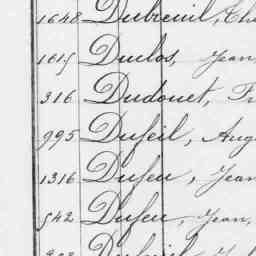 1648 Dubreuil, Che
1615 Duclos, Jean
316 Dudouet, Fr
995 Dufeil, Aug
1316 Dufeu, Jean
542 Dufeu, Jean,